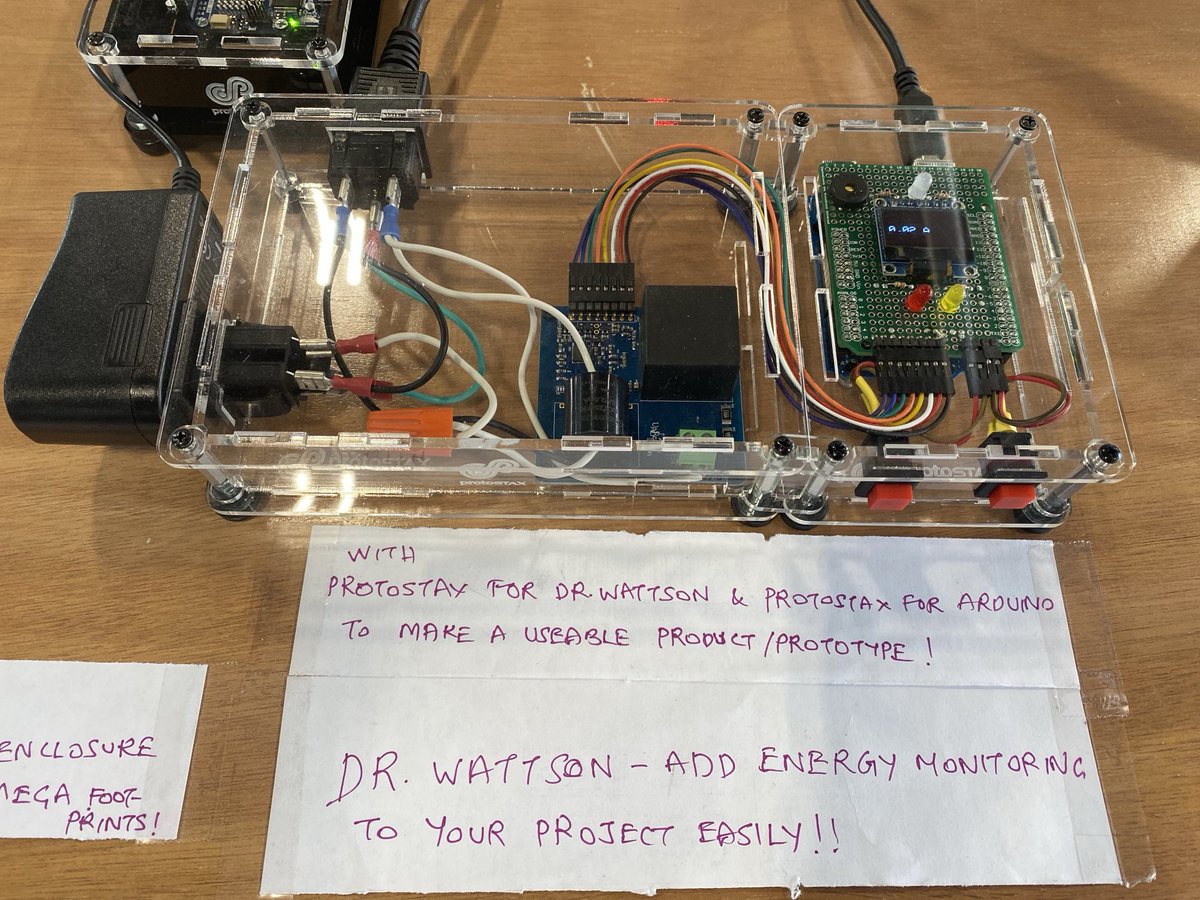 0.02 A
PROTOSTAX
PROTOSTAX
WITH
PROTOSTAX FOR DR.WATTSON & PROTOSTAX FOR ARDUINO
TO MAKE A USEABLE PRODUCT/PROTOTYPE!
DR. WATTSON - ADD ENERGY MONITORING
TO YOUR PROJECT EASILY!!
ENCLOSURE
MEGA FOOT-
PRINTS!